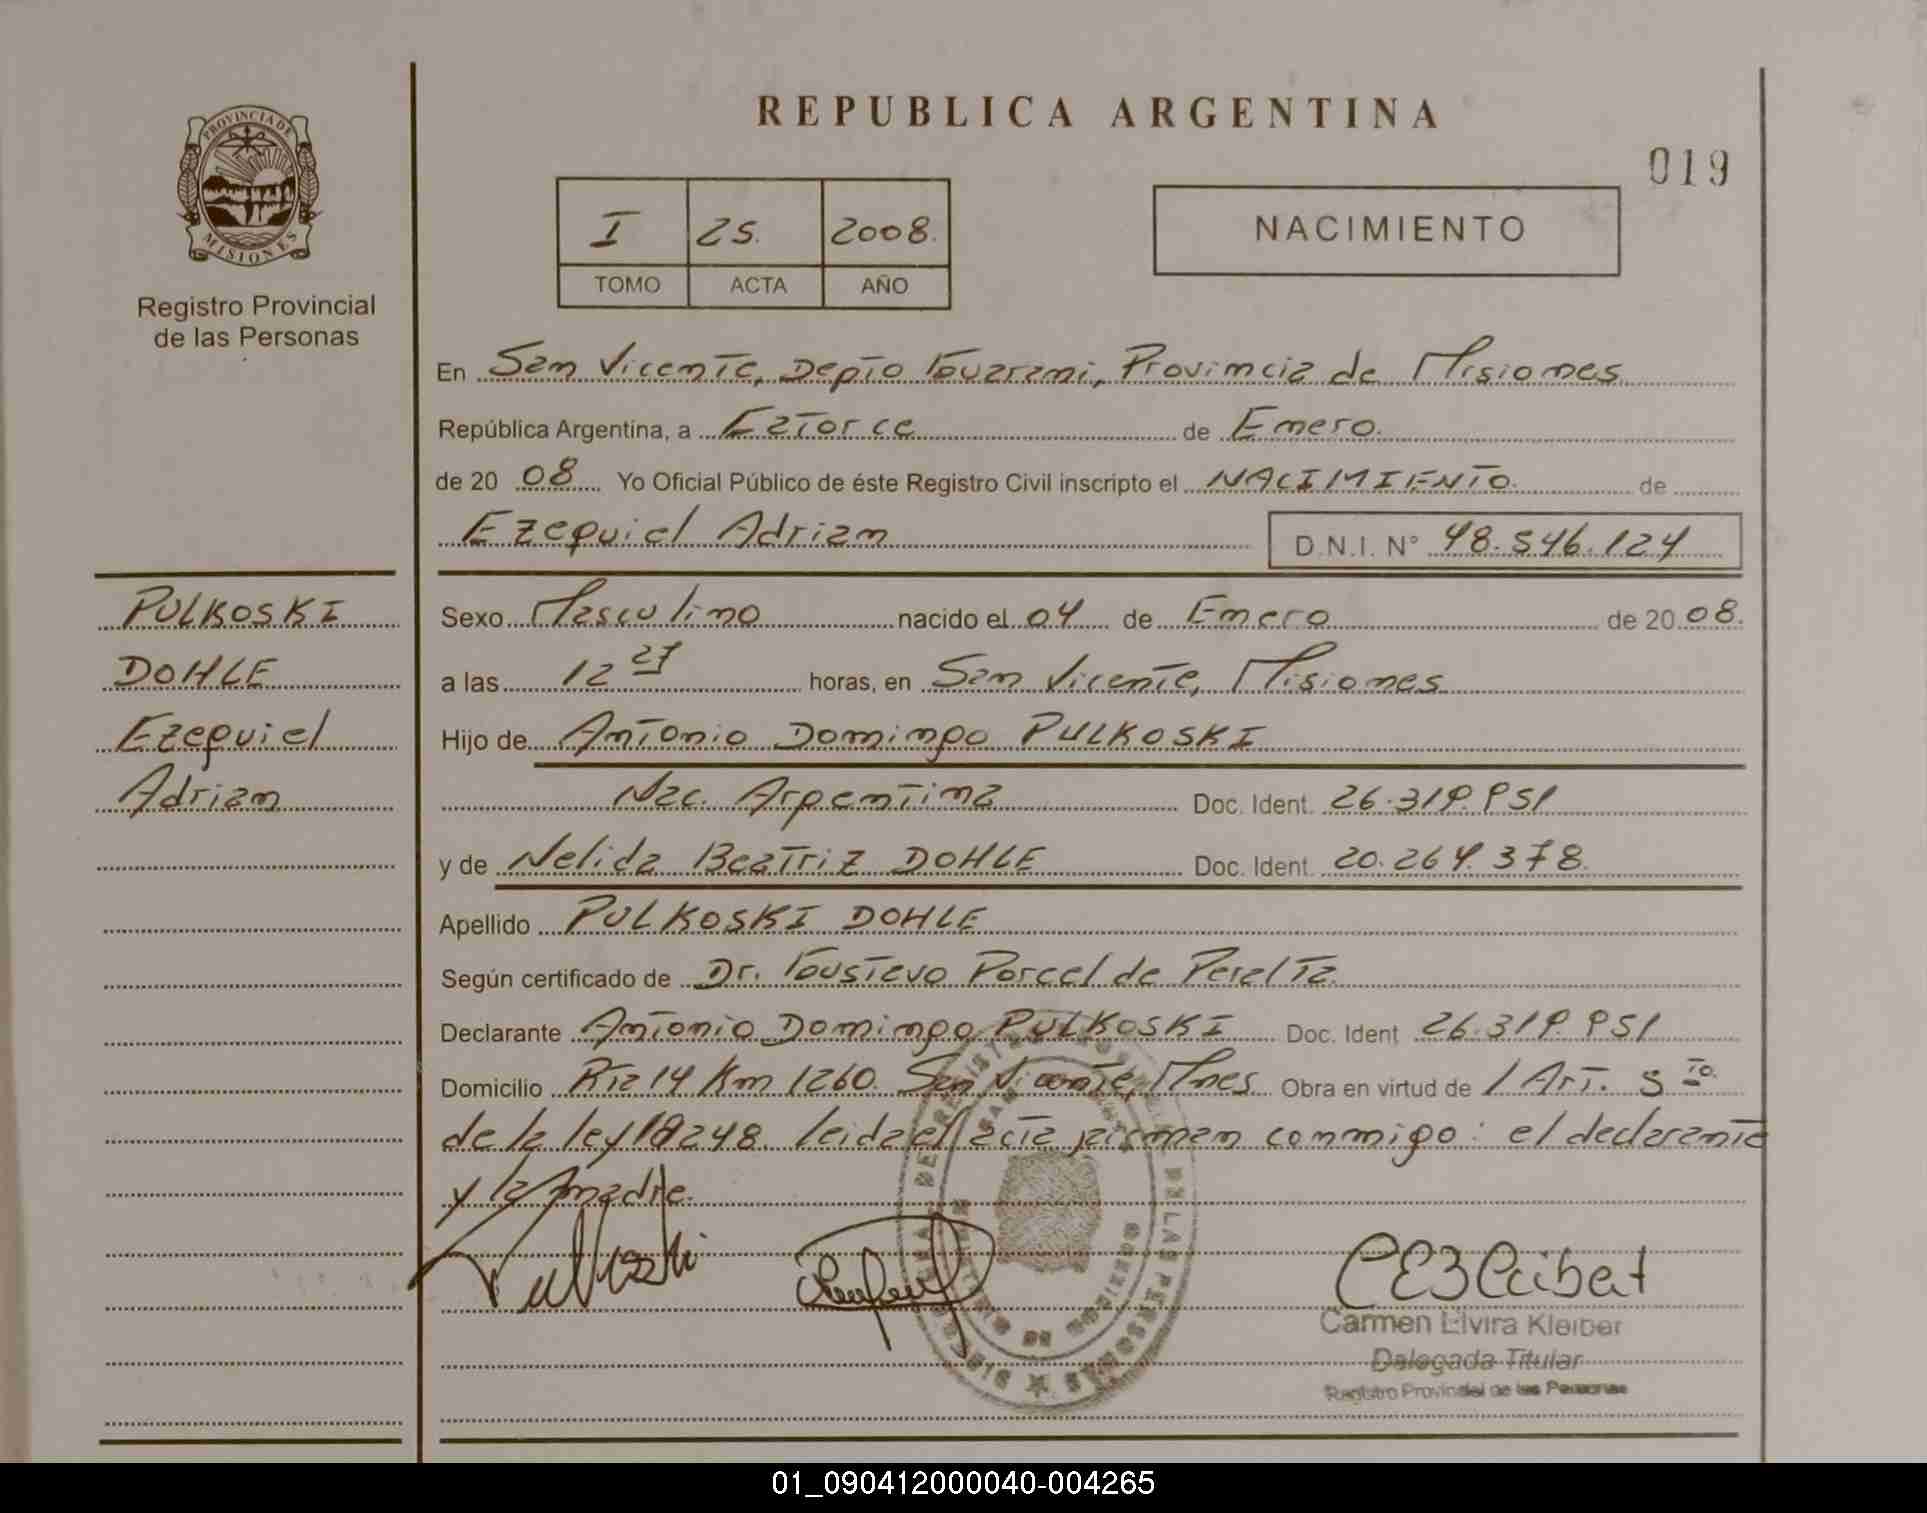 REPUBLICA ARGENTINA
019
PROVINCIA DE
MISIONES
Registro Provincial
de las Personas
I 25. 2008.
TOMO ACTA AÑO
NACIMIENTO
En San Vicente, Depto Guarani, Provincia de Misiones
República Argentina, a Catorce de Enero.
de 20 08 Yo Oficial Público de éste Registro Civil inscripto el NACIMIENTO. de
Ezequiel Adrian D.N.I. N° 48.546.124
PULKOSKI
DOHLE
Ezequiel
Adrian
Sexo Masculino nacido el 04 de Enero de 20 08.
a las 12 27 horas, en San Vicente, Misiones
Hijo de Antonio Domingo PULKOSKI
Nac. Argentina Doc. Ident. 26.319.951
y de Nelida Beatriz DOHLE Doc. Ident. 20.264.378.
Apellido PULKOSKI DOHLE
Según certificado de Dr. Gustavo Porcel de Peralta.
Declarante Antonio Domingo PULKOSKI Doc. Ident 26.319.951
Domicilio Rta 14 Km 1260. San Vicente, Mnes. Obra en virtud de / Art. 5 to.
de la ley 18248. leida el acta firman conmigo: el declarante
y la madre.
Carmen Elvira Kleiber
Delegada Titular
Registro Provincial de las Personas
01_090412000040-004265